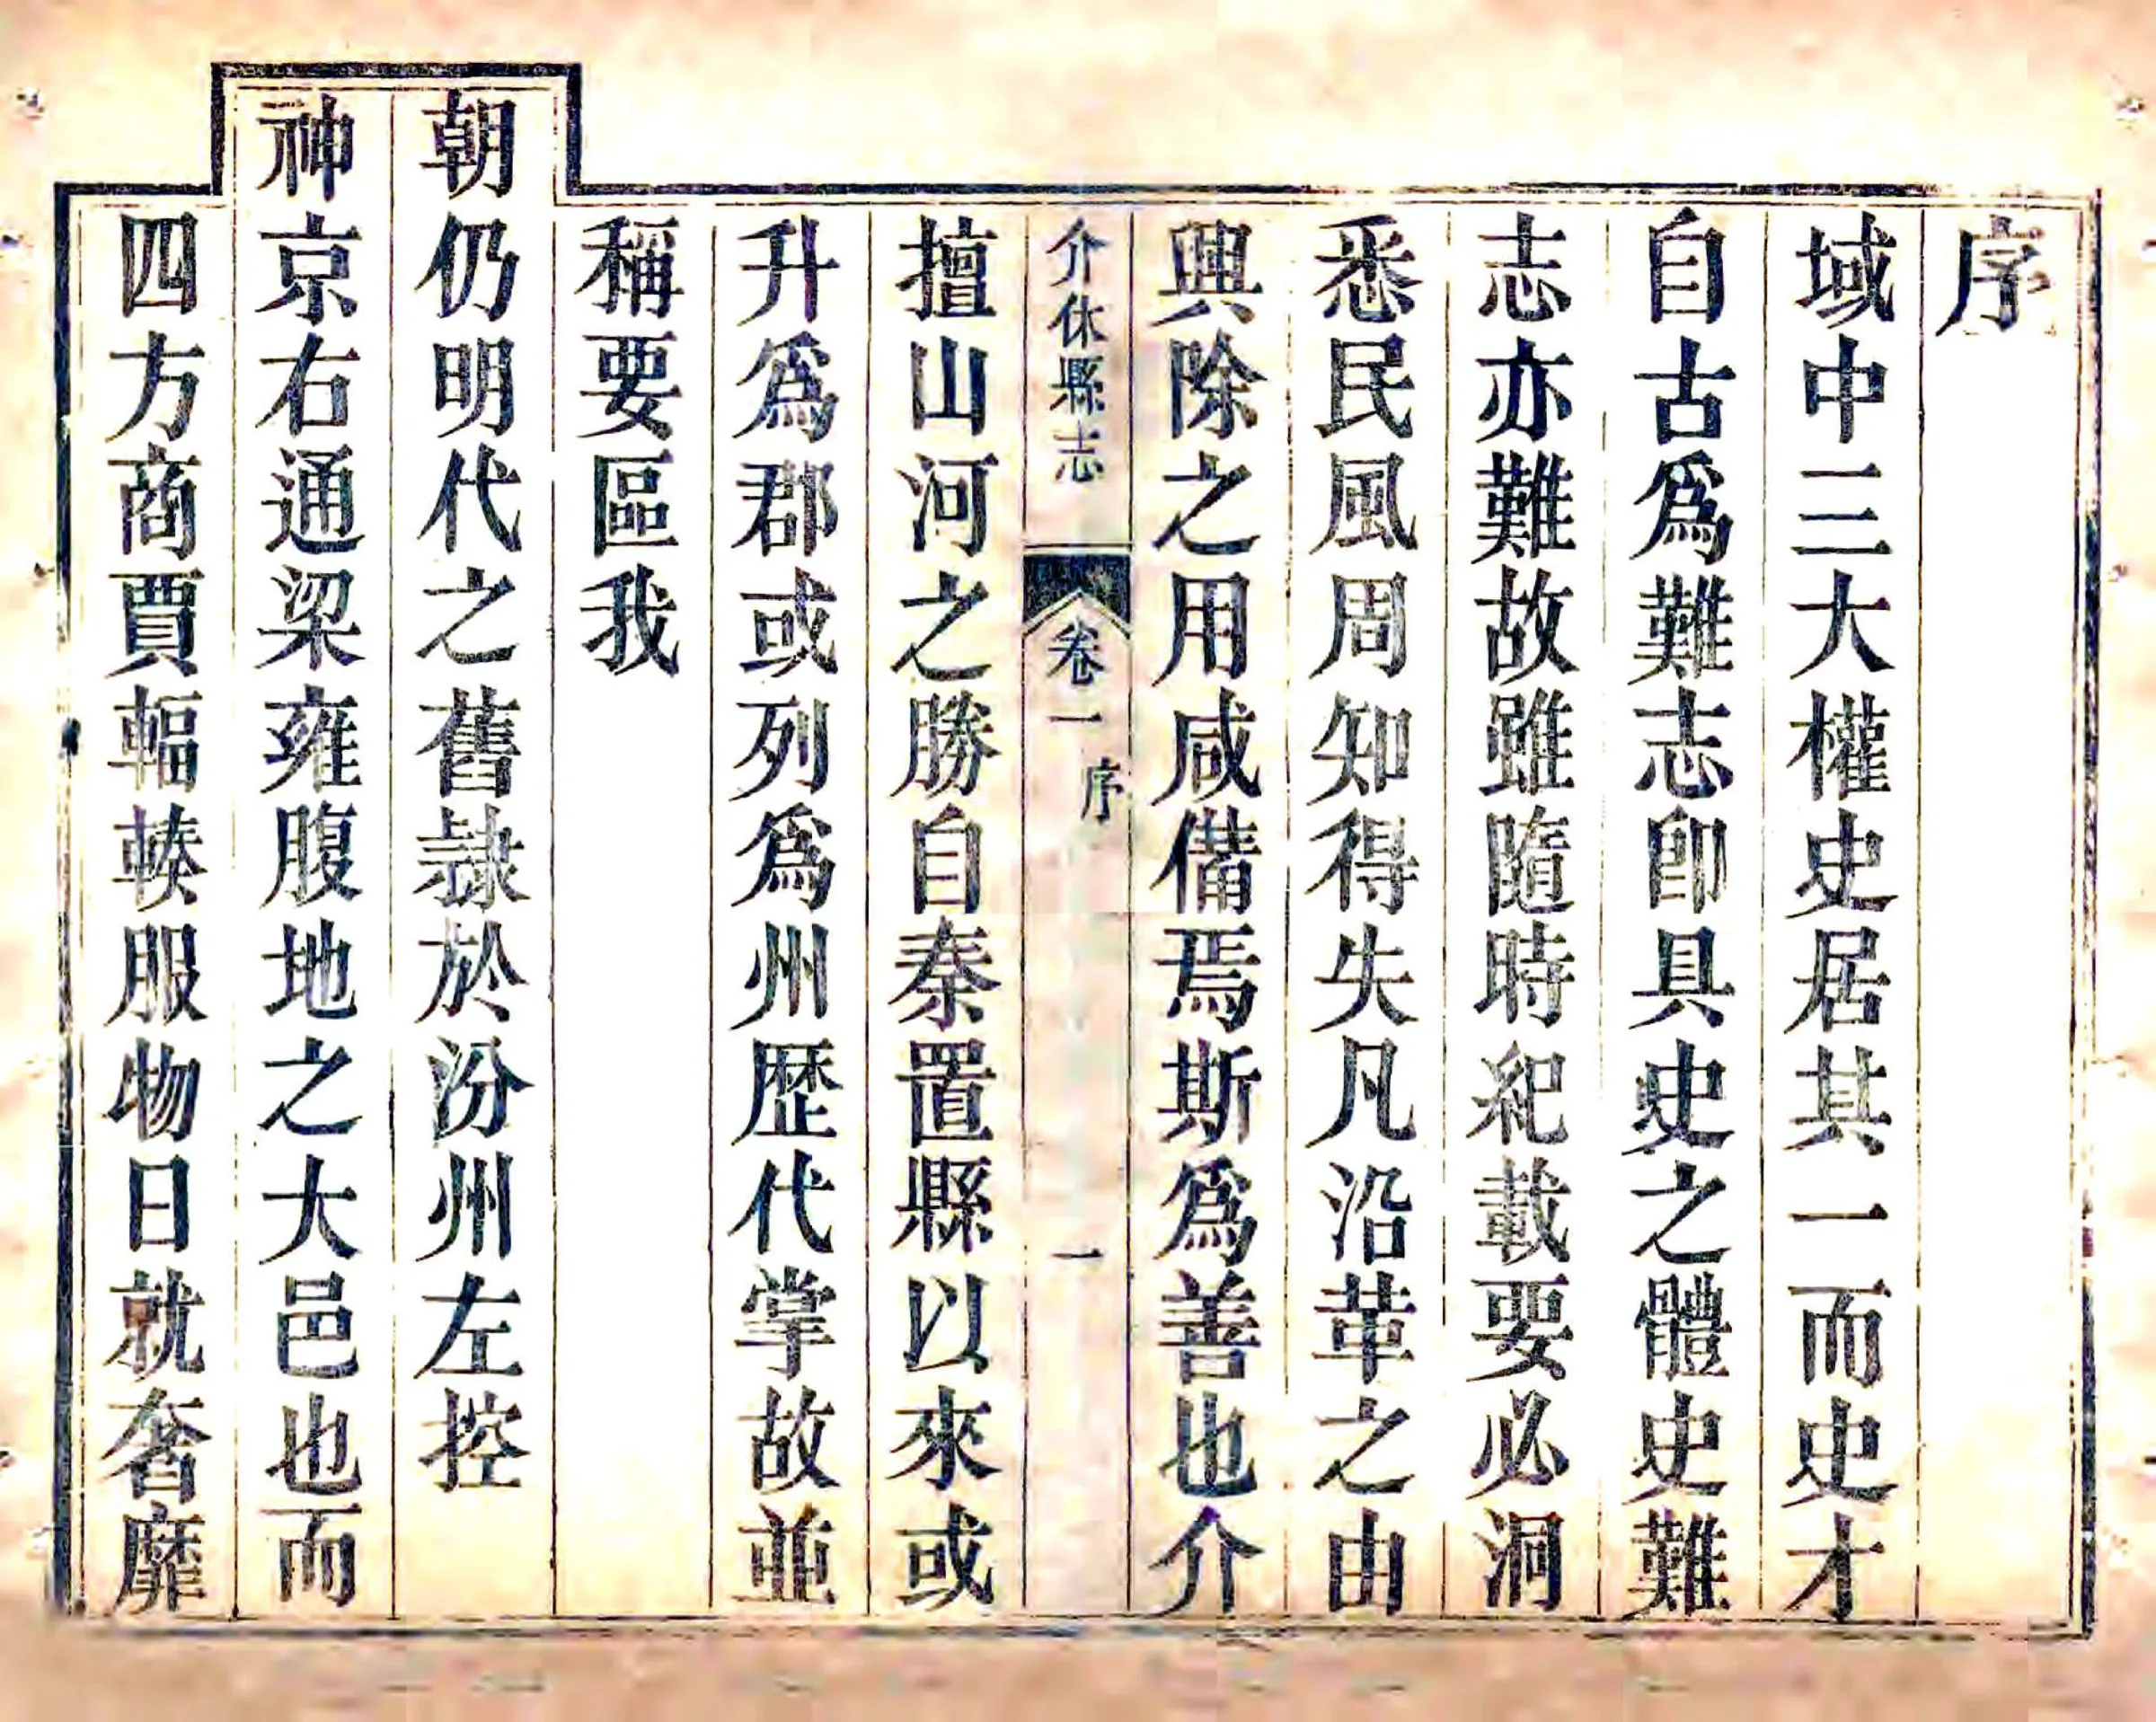 序
域中三大權史居其一而史才
自古爲難志卽具史之體史難
志亦難故雖隨時紀載要必洞
悉民風周知得失凡沿革之由
興除之用咸備焉斯爲善也介
介休縣志
卷一
序
一
擅山河之勝自秦置縣以來或
升爲郡或列爲州歷代掌故並
稱要區我
朝仍明代之舊隷於汾州左控
神京右通梁雍腹地之大邑也而
四方商賈輻輳服物日就奢靡